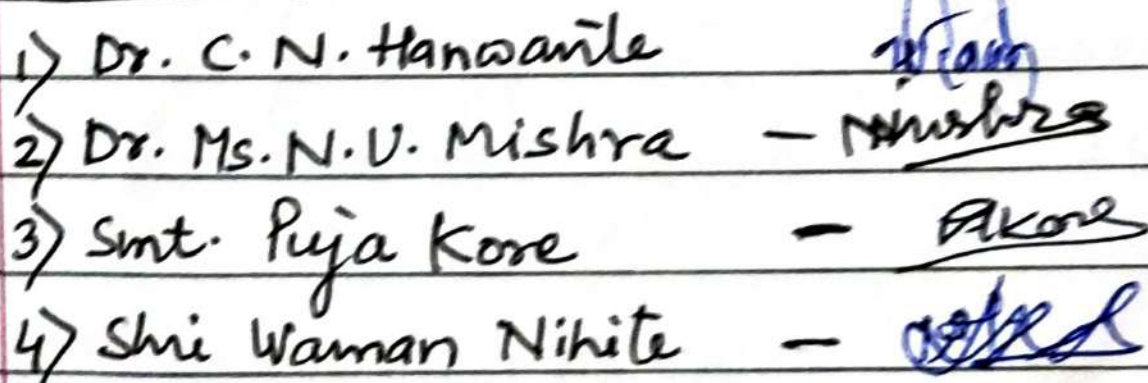 1) Dr. C. N. Hanwante
2) Dr. Ms. N. V. Mishra -
3) Smt. Puja Kore -
4) Shri Waman Nihite -